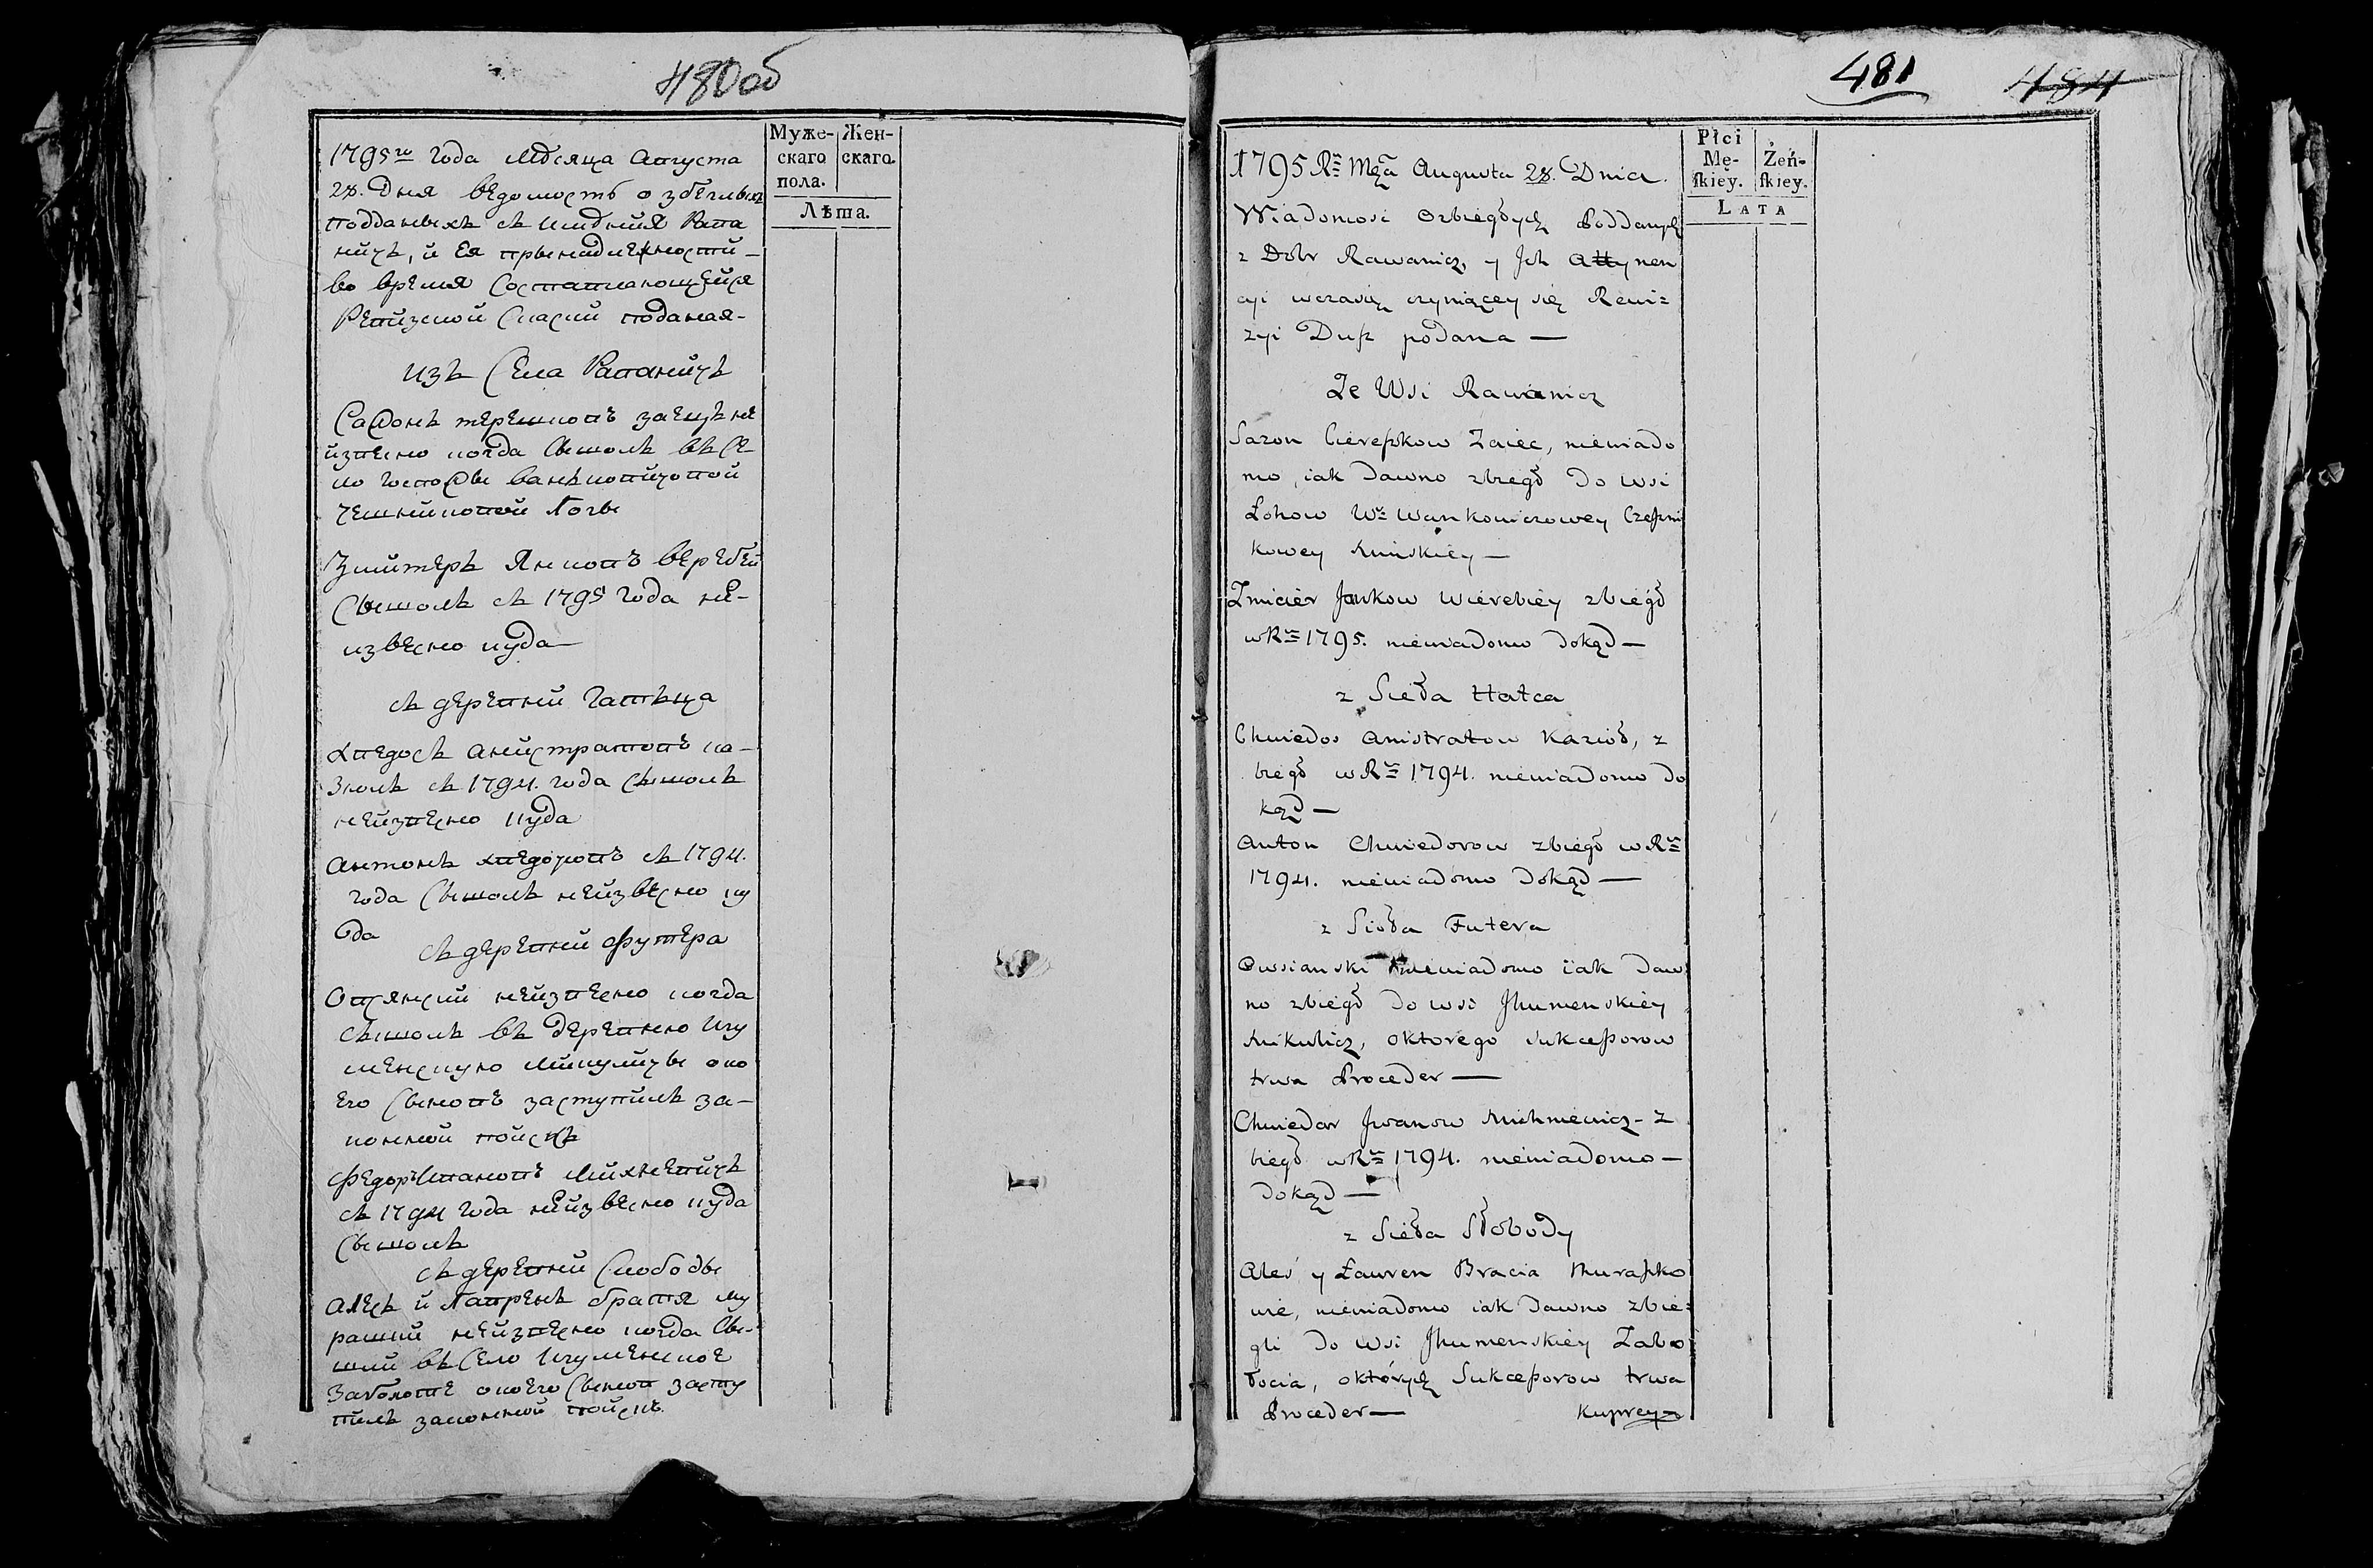 480об
Муже- Жен-
скаго скаго.
пола.
Лѣта.
1795го года Мѣсяца Августа
28. Дня вѣдомость о збѣглыхъ
подданыхъ съ имѣнія Рава
ничъ, и Ея принадлежности
во время Составляющейся
Ревизской Сказки поданая-
изъ Села Раваничъ
Сазонъ терешковъ заецъ не
извесно когда Сышолъ въ Се
ло госпожы ванковичовой
чешниковой Логвы
Змитеръ Янковъ веребей
Сышолъ съ 1795 года не-
извесно куда
съ деревни Гатьца
Хведосъ анистратовъ ка-
зюлъ съ 1794. года сышолъ
неизвесно куда
антонъ хведоровъ съ 1794.
года Сышолъ неизвесно ку
да
съ деревни Футера
Овсянский неизвесно когда
сышолъ въ деревню Игу
менскую Микуличы око
его Сыновъ заступилъ за-
конной поискъ
Федоръ Ивановъ Михневичъ
съ 1794 года неизвесно куда
Сышолъ
съ деревни Слободы
алесь и Лавренъ братя му
рашки неизвесно когда Сы-
шли въ Село Игуменское
Заболотте окоего Сынов засту
пилъ законной поискъ
481 484
Płci
Mę- Żeń-
ſkieÿ. ſkiey.
LATA
1795 Rᵘ Mᶜᵃ Augusta 28. Dnia.
Wiadomosć ozbiegłych Poddanych
z Dobr Rawanicz, y Jch Attynen
cyi wczasię czyniącey się Rewi=
zyi Dusz podana —
Ze Wsi Rawanicz
Sazon Cereszkow Zaiec, niewiado
mo, iak dawno zbiegł do wsi
Łohow Wᵉ Wankowiczowey Czeszni
kowey Minskiey —
Zmicier Jankow Wierebiey zbiegł
w Rᵘ 1795. niewiadomo dokąd —
z Sieła Hatca
Chwiedos Anistratow Kazioł, z
biegł w Rᵘ 1794. niewiadomo do
kąd —
Anton Chwiedorow zbiegł w Rᵘ
1794. niewiadomo dokąd —
z Sioła Futera
Owsianski niewiadomo iak daw
no zbiegł do wsi Jhumenskiey
Mikulicz, oktorego Sukceszorow
trwa Proceder —
Chwiedor Jwanow Michniewicz - z
biegł w Rᵘ 1794. niewiadomo —
dokąd —
z Sieła Słobody
Aleś y Ławren Bracia Muraszko
wie, niewiadomo iak dawno zbie=
gli do wsi Jhumenskiey Zabo
łocia, októrych Sukceszorow trwa
Proceder — Kuprey